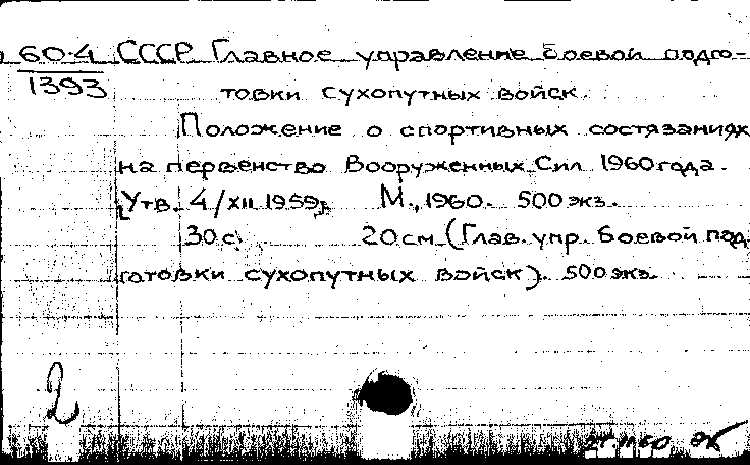 60-4 СССР Главное управление боевой подго-
1393
товки сухопутных войск.
Положение о спортивных состязаниях
на первенство Вооруженных Сил 1960 года.
Утв. 4/XII 1959г. М., 1960. 500 экз.
30 с. 20 см (Глав. упр. боевой под.
готовки сухопутных войск). 500 экз.
2